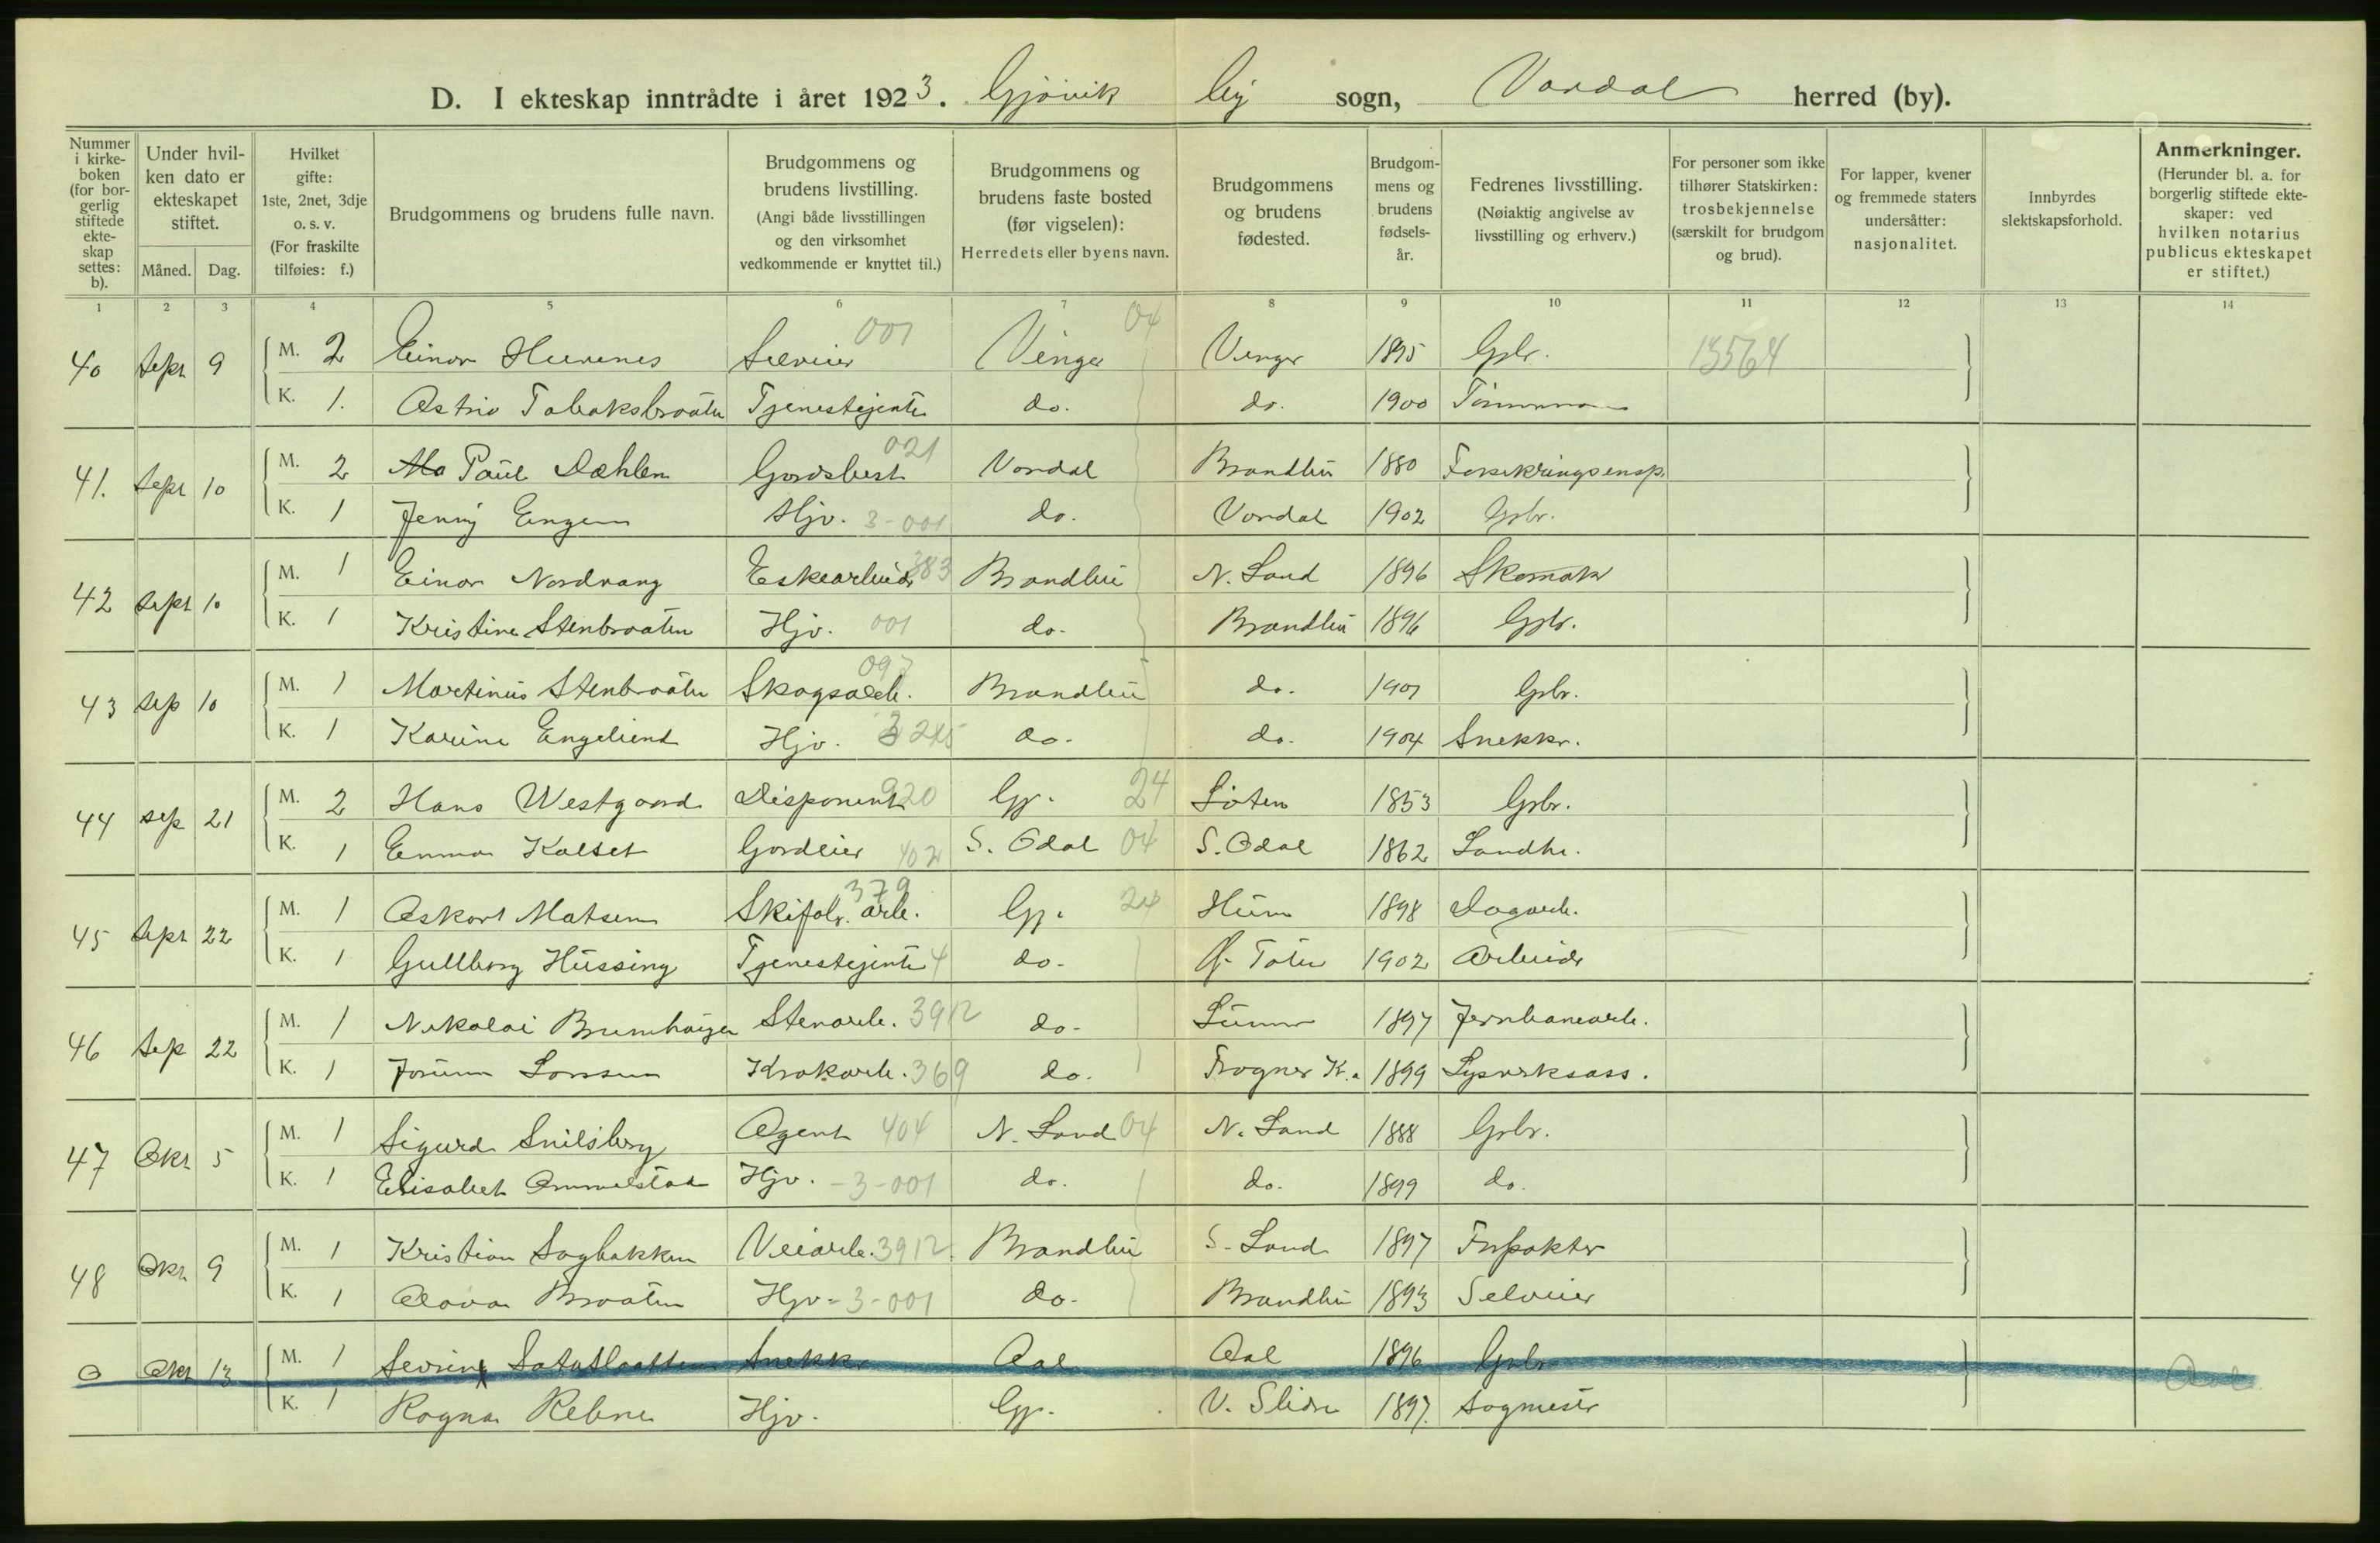 D. I ekteskap inntrådte i året 1923. Gjøvik by sogn, Vardal herred (by).
Nummer i kirkeboken (for borgerlig stiftede ekteskap settes: b).
Under hvilken dato er ekteskapet stiftet.
Måned. Dag.
Hvilket gifte: 1ste, 2net, 3dje o. s. v. (For fraskilte tilføies: f.)
Brudgommens og brudens fulle navn.
Brudgommens og brudens livstilling. (Angi både livsstillingen og den virksomhet vedkommende er knyttet til.)
Brudgommens og brudens faste bosted (før vigselen): Herredets eller byens navn.
Brudgommens og brudens fødested.
Brudgommens og brudens fødselsår.
Fedrenes livsstilling. (Nøiaktig angivelse av livsstilling og erhverv.)
For personer som ikke tilhører Statskirken: trosbekjennelse (særskilt for brudgom og brud).
For lapper, kvener og fremmede staters undersåtter: nasjonalitet.
Innbyrdes slektskapsforhold.
Anmerkninger. (Herunder bl. a. for borgerlig stiftede ekteskaper: ved hvilken notarius publicus ekteskapet er stiftet.)
1 2 3 4 5 6 7 8 9 10 11 12 13 14
40 Sept 9 M. 2 Einar Hurunes Selveier 001 Vinger 04 Vinger 1895 Gbr. 13564
K. 1. Astrid Tobaksbraaten Tjenestejente do. do. 1900 Tømmerm
41. Sept 10 M. 2 Paul Dæhlen Gardsbest 021 Vardal Brandbu 1880 Forsikringsinsp.
K. 1 Jenny Engen Hjv. 3-001 do. Vardal 1902 Gbr.
42 Sept 10 M. 1 Einar Nordvang Eskearbeid 383 Brandbu N. Land 1896 Skomak
K. 1 Kristine Stenbraaten Hjv. 001 do. Brandbu 1896 Gbr.
43 Sep 10 M. 1 Martinus Stenbraaten Skogsarb. 097 Brandbu do. 1901 Gbr.
K. 1 Karine Engelund Hjv. 3 245 do. do. 1904 Snekkr.
44 Sep 21 M. 2 Hans Westgaard Disponent 920 Gj. 24 Løten 1853 Gbr.
K. 1 Emma Kolset Gardeier 402 S. Odal 04 S. Odal 1862 Landhr.
45 Sept 22 M. 1 Oskar Matsen Skifabr. arb. 379 Gj. 24 Hurum 1898 Dagarb.
K. 1 Gullborg Hussing Tjenestejente 4 do. Ø. Toten 1902 Arbeider
46 Sep 22 M. 1 Nikolai Brunhaugen Stenarb. 3912 do. Lunner 1897 Jernbanearb.
K. 1 Jorunn Larssen Krokarb. 369 do. Frogner K.a 1899 Lysverksass.
47 Okt 5 M. 1 Sigurd Snilsberg Agent 404 N. Land 04 N. Land 1888 Gbr.
K. 1 Elisabet Ommelstad Hjv. -3-001 do. do. 1899 do.
48 Okt 9 M. 1 Kristian Sagbakken Veiarb. 3912 Brandbu S. Land 1897 Forpakter
K. 1 Braaten Hjv. -3-001 do. Brandbu 1893 Selveier
0 Okt 13 M. 1 Sevrin Snekkr Aal Aal 1896 Gbr Aal
K. 1 Ragna Rebne Hjv. Gj. V. Slidre 1897. Sagmester